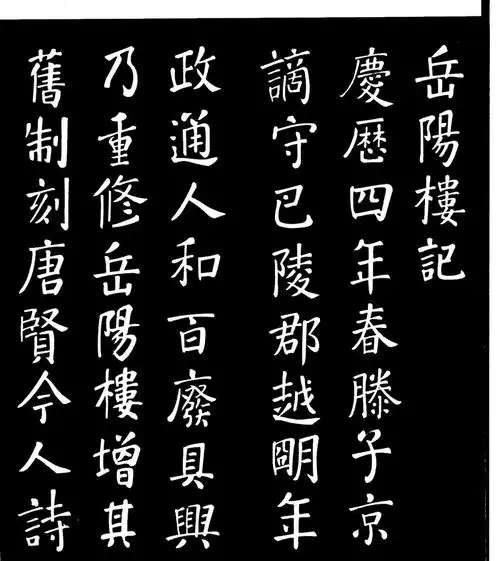 岳陽樓記
慶歷四年春滕子京
謫守巴陵郡越明年
政通人和百廢具興
乃重修岳陽樓增其
舊制刻唐賢今人詩